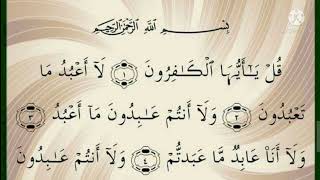 بِسْمِ اللَّهِ الرَّحْمَٰنِ الرَّحِيمِ
قُلْ يَـٰٓأَيُّهَا ٱلْكَـٰفِرُونَ ١ لَآ أَعْبُدُ مَا
تَعْبُدُونَ ٢ وَلَآ أَنتُمْ عَـٰبِدُونَ مَآ أَعْبُدُ ٣
وَلَآ أَنَا۠ عَابِدٌ مَّا عَبَدتُّمْ ٤ وَلَآ أَنتُمْ عَـٰبِدُونَ